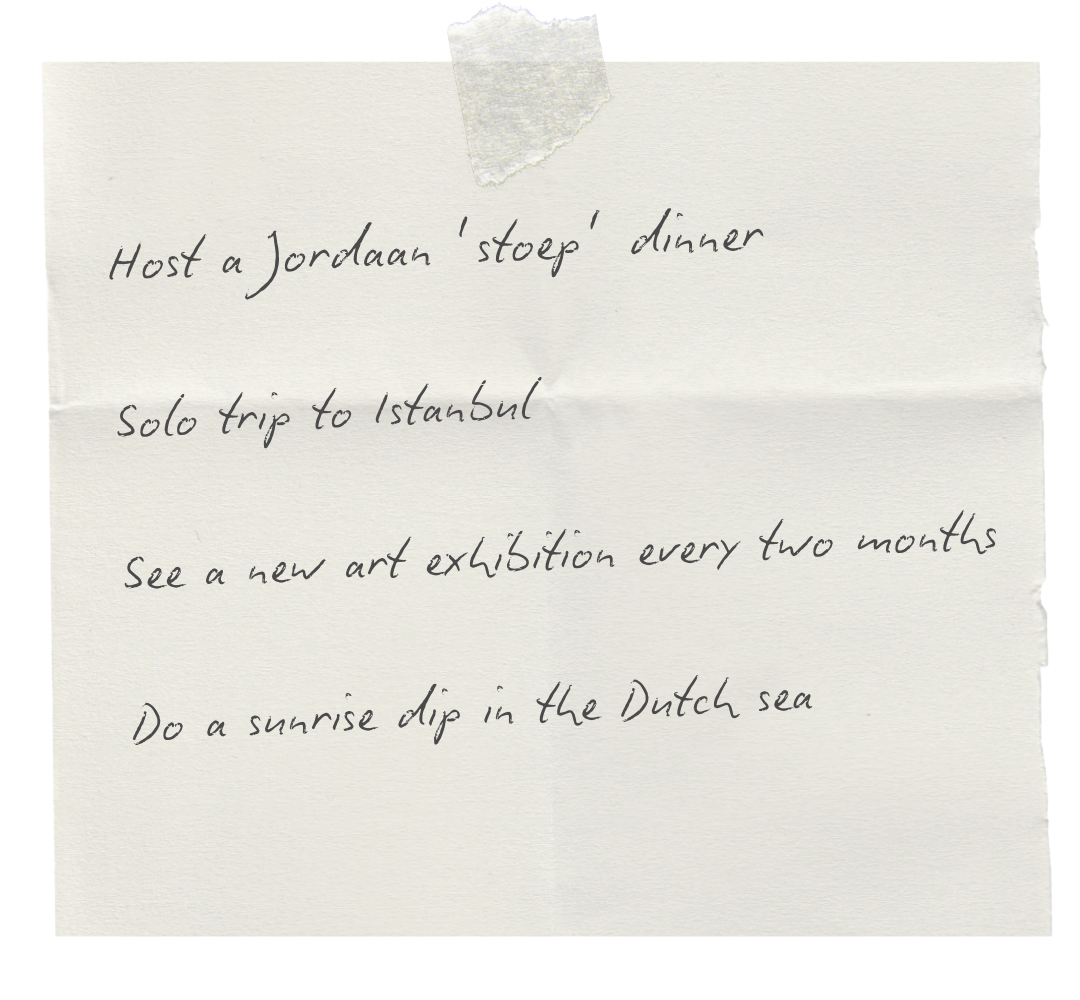 Host a Jordaan 'stoep' dinner
Solo trip to Istanbul
See a new art exhibition every two months
Do a sunrise dip in the Dutch sea